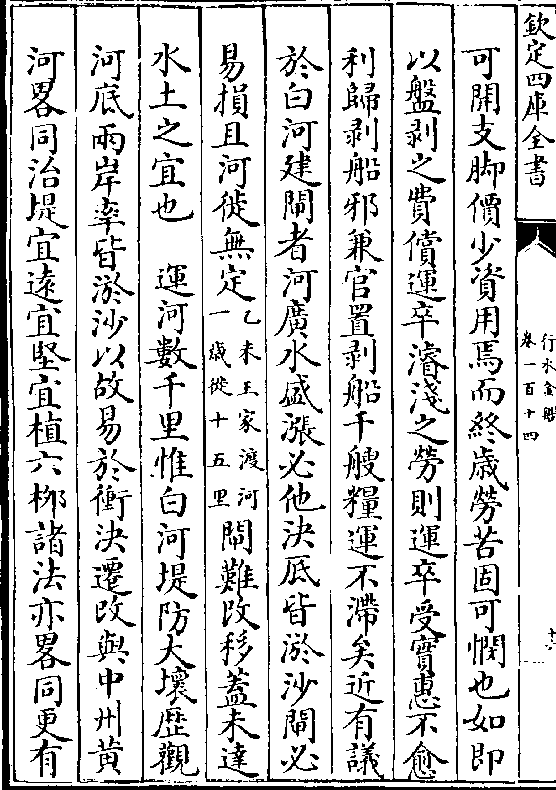 欽定四庫全書
行水金鑑
卷一百十四
可開支脚價少資用焉而終歲勞苦固可憫也如即
以盤剥之費償運卒濬淺之勞則運卒受實惠不愈
利歸剥船邪兼官置剥船千艘糧運不滯矣近有議
於白河建閘者河廣水盛漲必他決厎皆淤沙閘必
易損且河徙無定乙未王家渡河一歲徙十五里閘難改移蓋未達
水土之宜也　運河數千里惟白河堤防大壞歷觀
河底兩岸率皆淤沙以故易於衝決遷改與中州黄
河畧同治堤宜遠宜堅宜植六栁諸法亦畧同更有